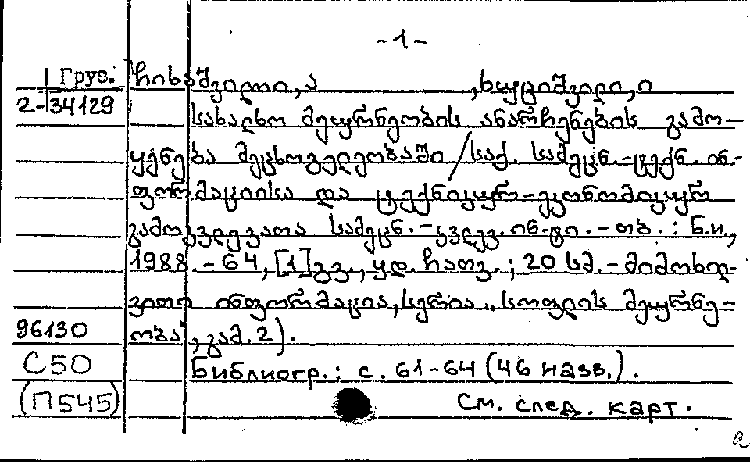 -1-
Груз. ჩიხაშვილი, ა , ხუციშვილი, ი
2-34129
სახალხო მეურნეობის ანარჩენების გამო-
ყენება მეცხოველეობაში / საქ. სამეცნ.-ტექნ. ინ-
ფორმაციისა და ტექნიკურ-ეკონომიკურ
გამოკვლევათა სამეცნ.-კვლევ. ინ-ტი. -თბ. : ნ.ი.,
1988. - 64, [1] გვ., ყდ. ჩათვ. ; 20 სმ. - მიმოხილ-
ვითი ინფორმაცია, სერია "სოფლის მეურნე-
96130 ობა", გამ. 2).
С50 Библиогр.: с. 61-64 (46 назв.).
(П545) См. след. карт.